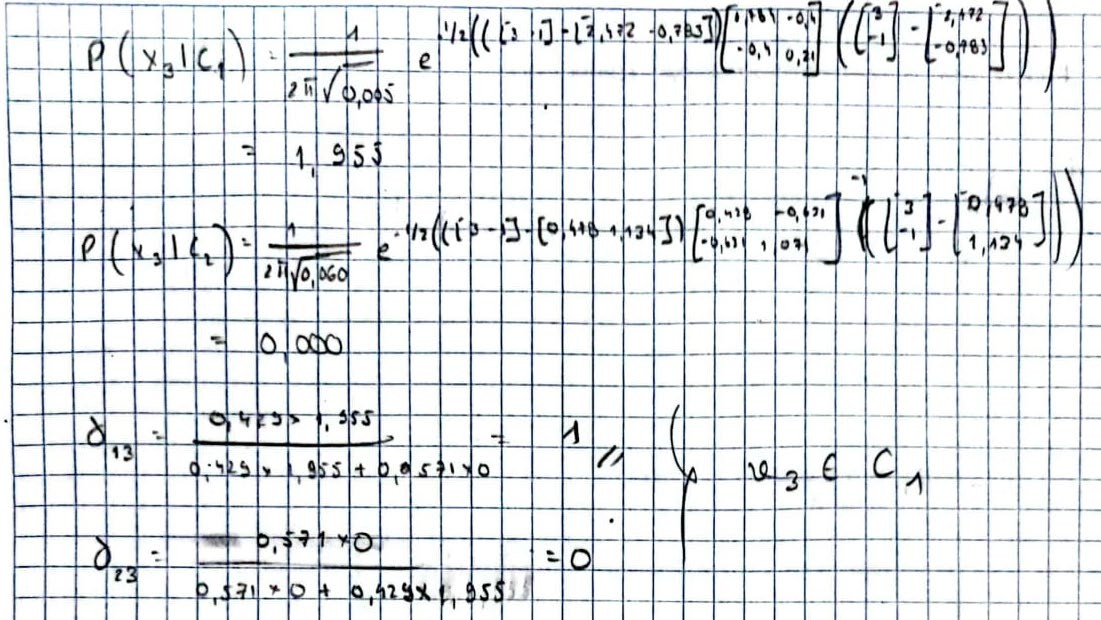 P(x₃|C₁) = 1 / 2π√0,005 e^-1/2(([3 -1] - [2,472 -0,783]) [0,784 -0,4 -0,4 0,21] ([3 -1] - [2,472 -0,783]))
= 1,955
P(x₃|C₂) = 1 / 2π√0,060 e^-1/2(([3 -1] - [0,478 1,134]) [0,428 -0,631 -0,631 1,071]^-1 ([3 -1] - [0,478 1,134]))
= 0,000
γ₁₃ = 0,429 × 1,955 / 0,429 × 1,955 + 0,0571 × 0 = 1 // x₃ ∈ C₁
γ₂₃ = 0,571 × 0 / 0,571 × 0 + 0,429 × 1,955 = 0